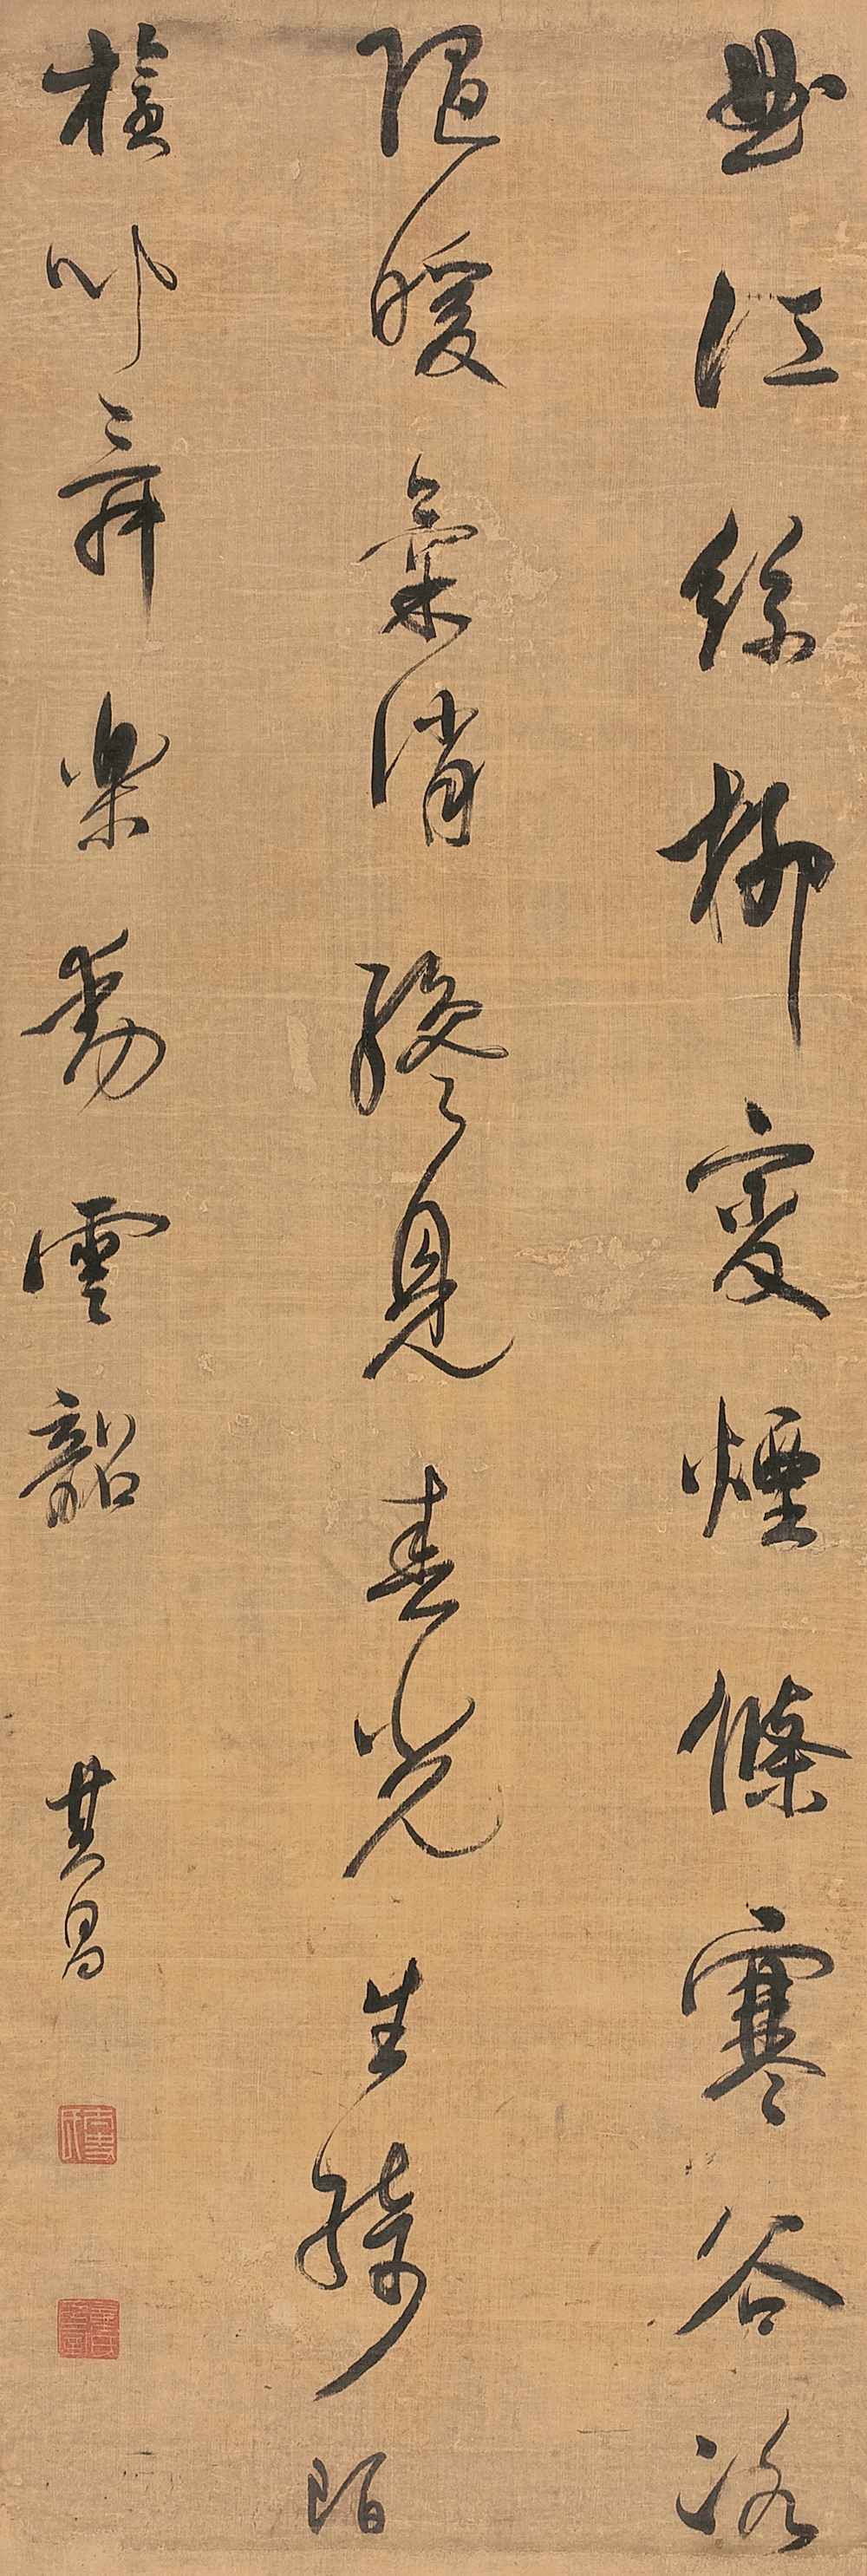 曲江絲柳變煙條寒谷冰
隨暖氣消終見春光生綺陌
樂動雲韶
其昌